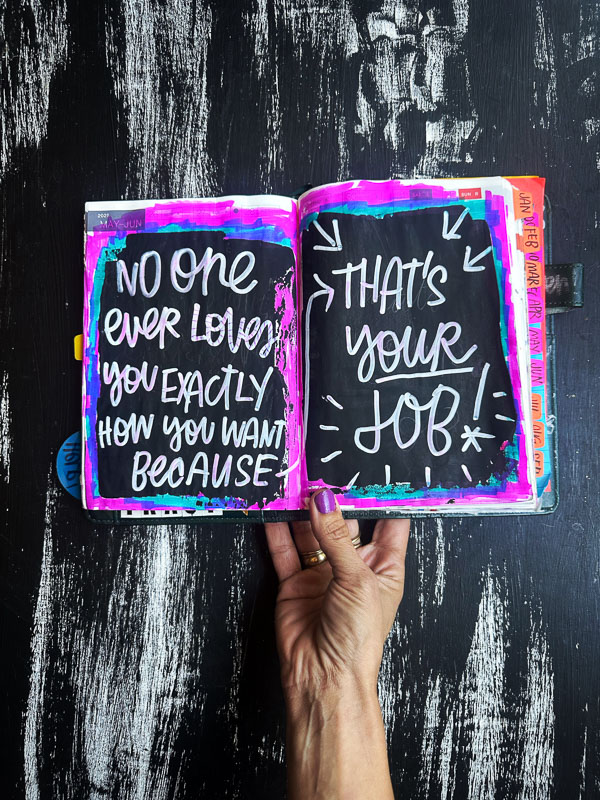 2021
MAY-JUN
NO ONE
EVER LOVES
YOU EXACTLY
HOW YOU WANT
BECAUSE
SUN
THAT'S
YOUR
JOB!
JAN
FEB
MAR
APR
MAY
JUN
JUL
AUG
SEP